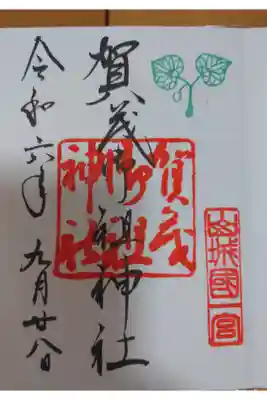 山城國一宮
賀茂御祖神社
賀茂御祖神社
令和六年九月廿八日